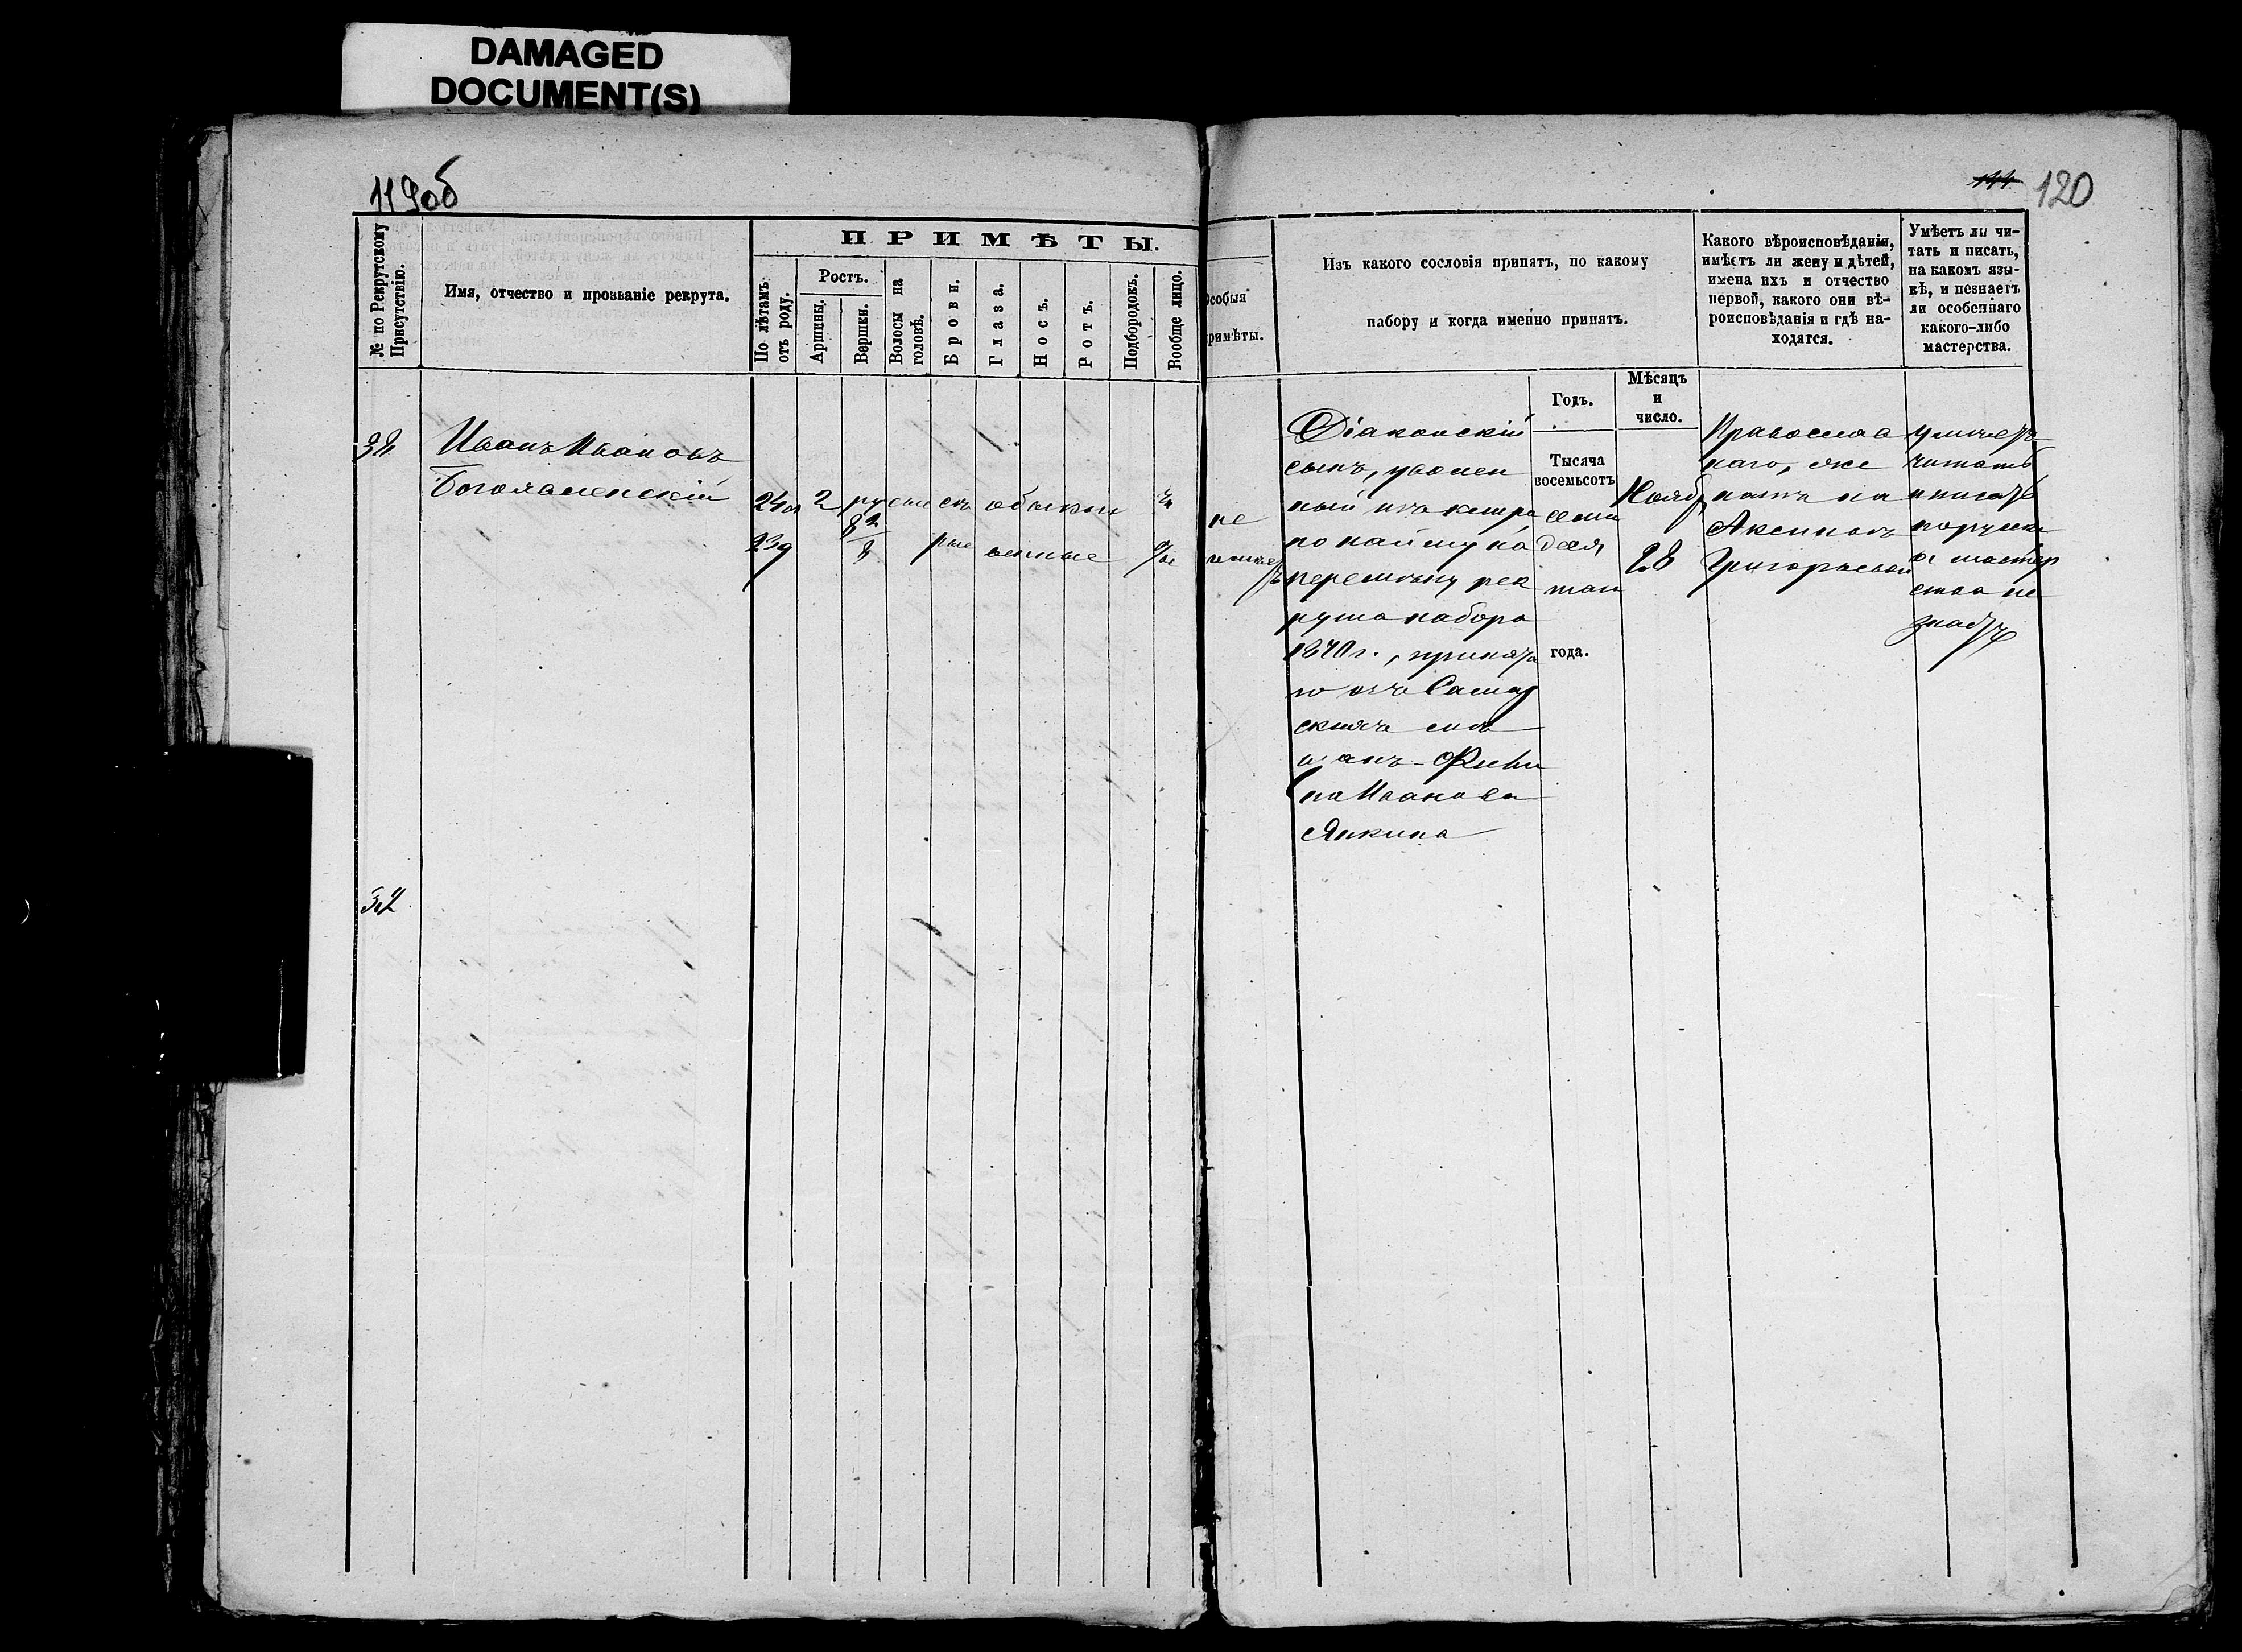 DAMAGED
DOCUMENT(S)
119об
120
№ по Рекрутскому
Присутствію.
Имя, отчество и прозваніе рекрута.
ПРИМѢТЫ.
По лѣтамъ
отъ роду.
Ростъ.
Аршины.
Вершки.
Волосы на
головѣ.
Брови.
Глаза.
Носъ.
Ротъ.
Подбородокъ.
Вообще лицо.
Особыя
примѣты.
Изъ какого сословія принятъ, по какому
набору и когда именно принятъ.
Какого вѣроисповѣданія,
имѣетъ ли жену и дѣтей,
имена ихъ и отчество
первой, какого они вѣ-
роисповѣданія и гдѣ на-
ходятся.
Умѣетъ ли чи-
тать и писать,
на какомъ язы-
кѣ, и незнаетъ
ли особеннаго
какого-либо
мастерства.
Годъ.
Мѣсяцъ
и
число.
Иванъ Ивановъ
Богоявленскій
2
обыкно
венные
не
имѣетъ
Діаконскій
сынъ, уволен
ный изъ
по найму на
перемѣну рек
рута набора
1870 г., принята
го изъ Самар
скихъ мѣ
щанъ - Филип
па Иванова
Янкина
Тысяча
восемьсотъ
семи
деся
таго
года.
Нояб.
28
Православ
наго, же
натъ на
Аксиньѣ
Григорьевой
умѣетъ
читать
и писать
по русски
а мастер
ства не
знаетъ
32